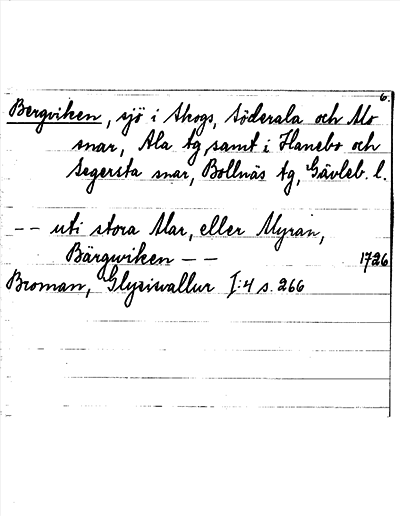 6.
Bergviken, sjö i Skogs, Söderala och Mo
snar, Ala tg, samt i Hanebo och
Segersta snar, Bollnäs tg, Gävleb. l.
-- uti stora Alar, eller Myran,
Bärgwiken -- 1726
Broman, Glysisvallur I:4 s. 266